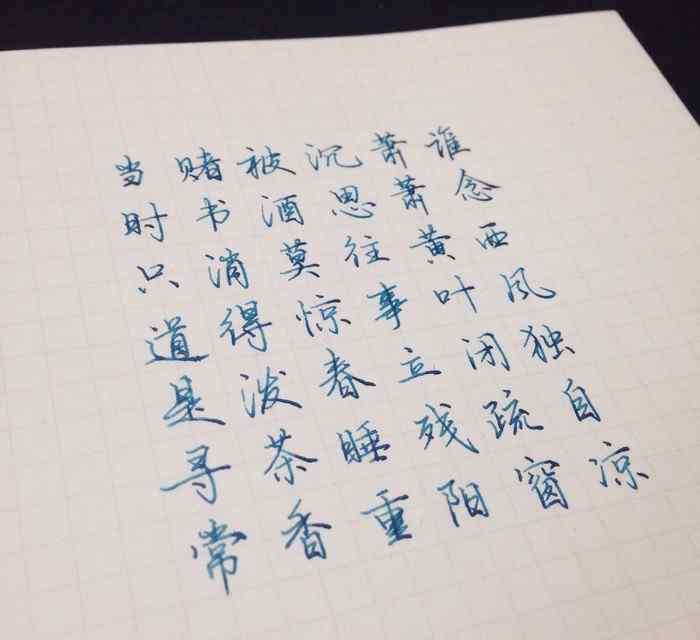 谁念西风独自凉
萧萧黄叶闭疏窗
沉思往事立残阳
被酒莫惊春睡重
赌书消得泼茶香
当时只道是寻常